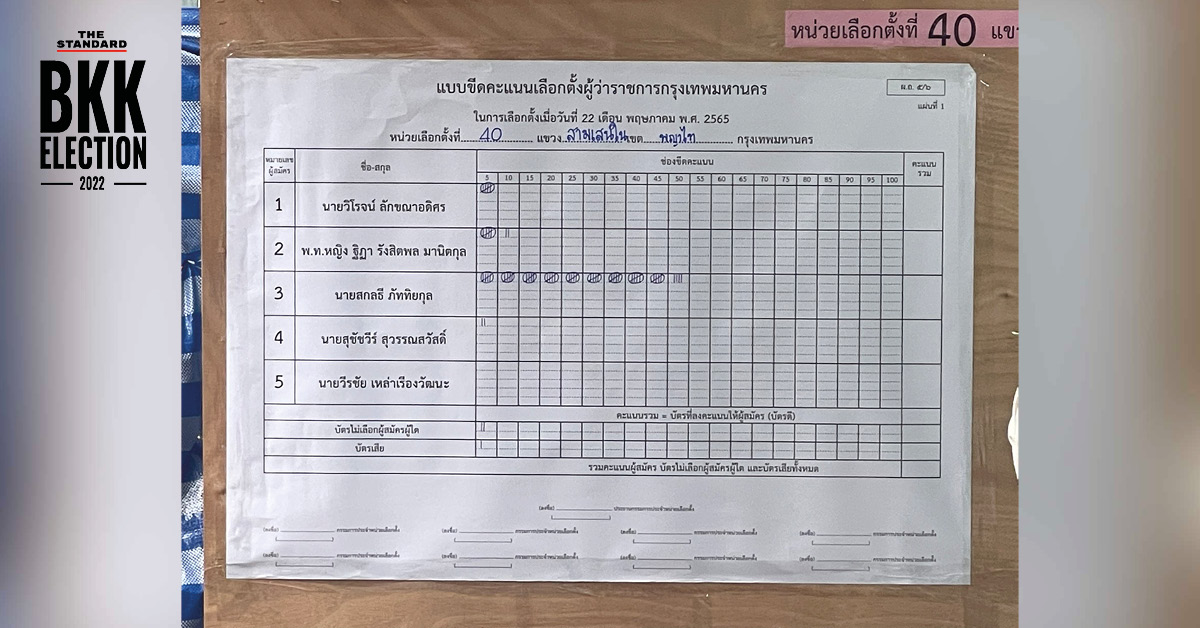 THE
STANDARD
BKK
ELECTION
2022
หน่วยเลือกตั้งที่ 40 แขว
แบบขีดคะแนนเลือกตั้งผู้ว่าราชการกรุงเทพมหานคร
ผ.ถ. ๕/๖
แผ่นที่ 1
ในการเลือกตั้งเมื่อวันที่ 22 เดือน พฤษภาคม พ.ศ. 2565
หน่วยเลือกตั้งที่ 40 แขวง สามเสนใน เขต พญาไท กรุงเทพมหานคร
หมายเลขผู้สมัคร ชื่อ-สกุล ช่องขีดคะแนน คะแนนรวม
5 10 15 20 25 30 35 40 45 50 55 60 65 70 75 80 85 90 95 100
1 นายวิโรจน์ ลักขณาอดิศร
2 พ.ท.หญิง ฐิฏา รังสิตพล มานิตกุล
3 นายสกลธี ภัททิยกุล
4 นายสุชัชวีร์ สุวรรณสวัสดิ์
5 นายวีรชัย เหล่าเรืองวัฒนะ
คะแนนรวม = บัตรที่ลงคะแนนให้ผู้สมัคร (บัตรดี)
บัตรไม่เลือกผู้สมัครผู้ใด
บัตรเสีย
รวมคะแนนผู้สมัคร บัตรไม่เลือกผู้สมัครผู้ใด และบัตรเสียทั้งหมด
(ลงชื่อ) ประธานกรรมการประจำหน่วยเลือกตั้ง
(ลงชื่อ) กรรมการประจำหน่วยเลือกตั้ง (ลงชื่อ) กรรมการประจำหน่วยเลือกตั้ง (ลงชื่อ) กรรมการประจำหน่วยเลือกตั้ง (ลงชื่อ) กรรมการประจำหน่วยเลือกตั้ง
(ลงชื่อ) กรรมการประจำหน่วยเลือกตั้ง (ลงชื่อ) กรรมการประจำหน่วยเลือกตั้ง (ลงชื่อ) กรรมการประจำหน่วยเลือกตั้ง (ลงชื่อ) กรรมการประจำหน่วยเลือกตั้ง